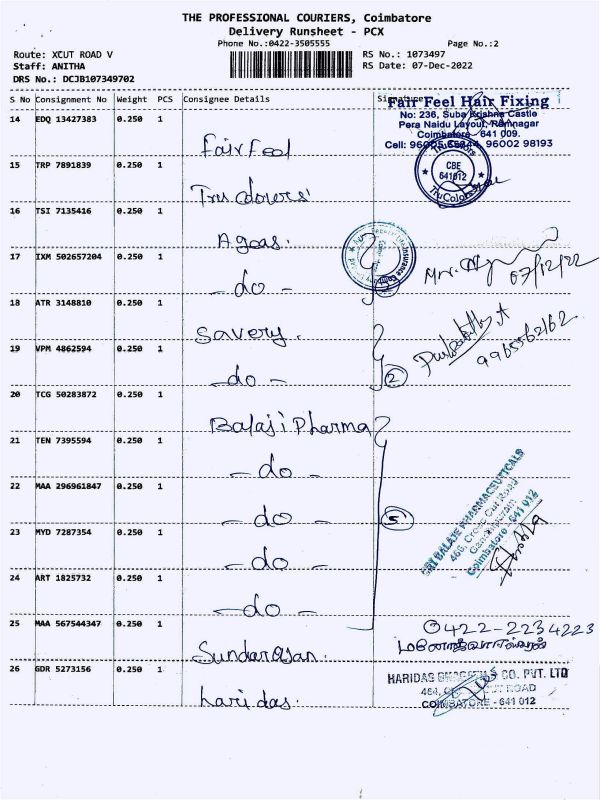 THE PROFESSIONAL COURIERS, Coimbatore
Delivery Runsheet - PCX
Phone No.:0422-3505555 Page No.:2
Route: XCUT ROAD V RS No.: 1073497
Staff: ANITHA RS Date: 07-Dec-2022
DRS No.: DCJB107349702
S No Consignment No Weight PCS Consignee Details Signature
Fair Feel Hair Fixing
No: 236, Suba Krishna Castle
Pera Naidu Layout, Ramnagar
Coimbatore - 641 009.
Cell: 96005 96002 98193
14 EDQ 13427383 0.250 1 Fair Feel
CBE
641012
TruColors
15 TRP 7891839 0.250 1 Tru Colours'
16 TSI 7135416 0.250 1 Agoas.
Insurance Comp
17 IXM 502657204 0.250 1 -do- Mr. 07/12/22
18 ATR 3148810 0.250 1 Savery.
9965562162
19 VPM 4862594 0.250 1 -do- 2
20 TCG 50283872 0.250 1 Balaji Pharma
21 TEN 7395594 0.250 1 -do-
SRI BALAJE PHARMACEUTICALS
466, Cross Cut Road
Gandhipuram
Coimbatore - 641 012
22 MAA 296961847 0.250 1 -do- 5
23 MYD 7287354 0.250 1 -do-
24 ART 1825732 0.250 1 -do-
25 MAA 567544347 0.250 1 Sundarosan. 0422-2234223
26 GDR 5273156 0.250 1 haridas.
HARIDAS CO. PVT. LTD
464, CUT ROAD
COIMBATORE - 641 012